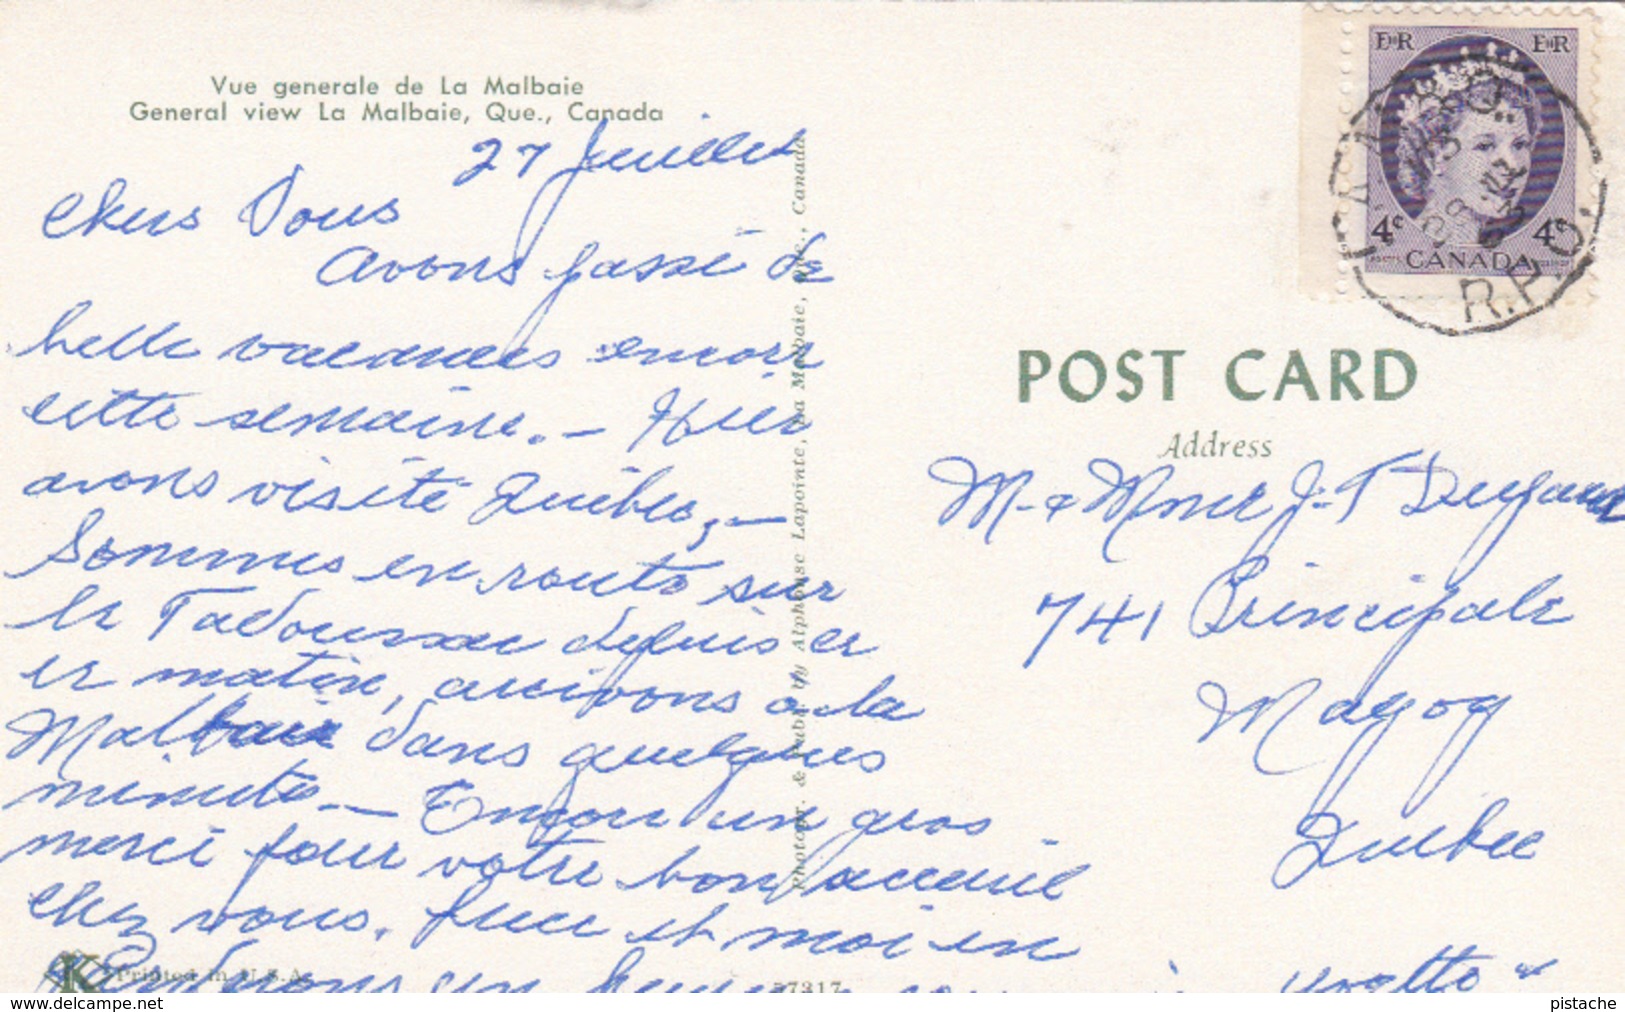 Vue generale de La Malbaie
General view La Malbaie, Que., Canada
27 Juillet
Chers Vous
Avons passé de
belle vacances encore
cette semaine. - Hier
avons visité Québec, -
Sommes en route sur
le Tadoussac depuis ce
matin, arrivons a la
Malbaie dans quelques
minutes. - Encore un gros
merci pour votre bon accueil
chez vous. Luce et moi en
un
Yvette &
Printed in U.S.A.
57317
Photogr. & Pub. by Alphonse Lapointe, La Malbaie, Que., Canada
E II R E II R
4c 4c
CANADA
R.P.O.
POST CARD
Address
M. & Mme J-T
741 Principale
Magog
Quebec
delcampe.net
pistache